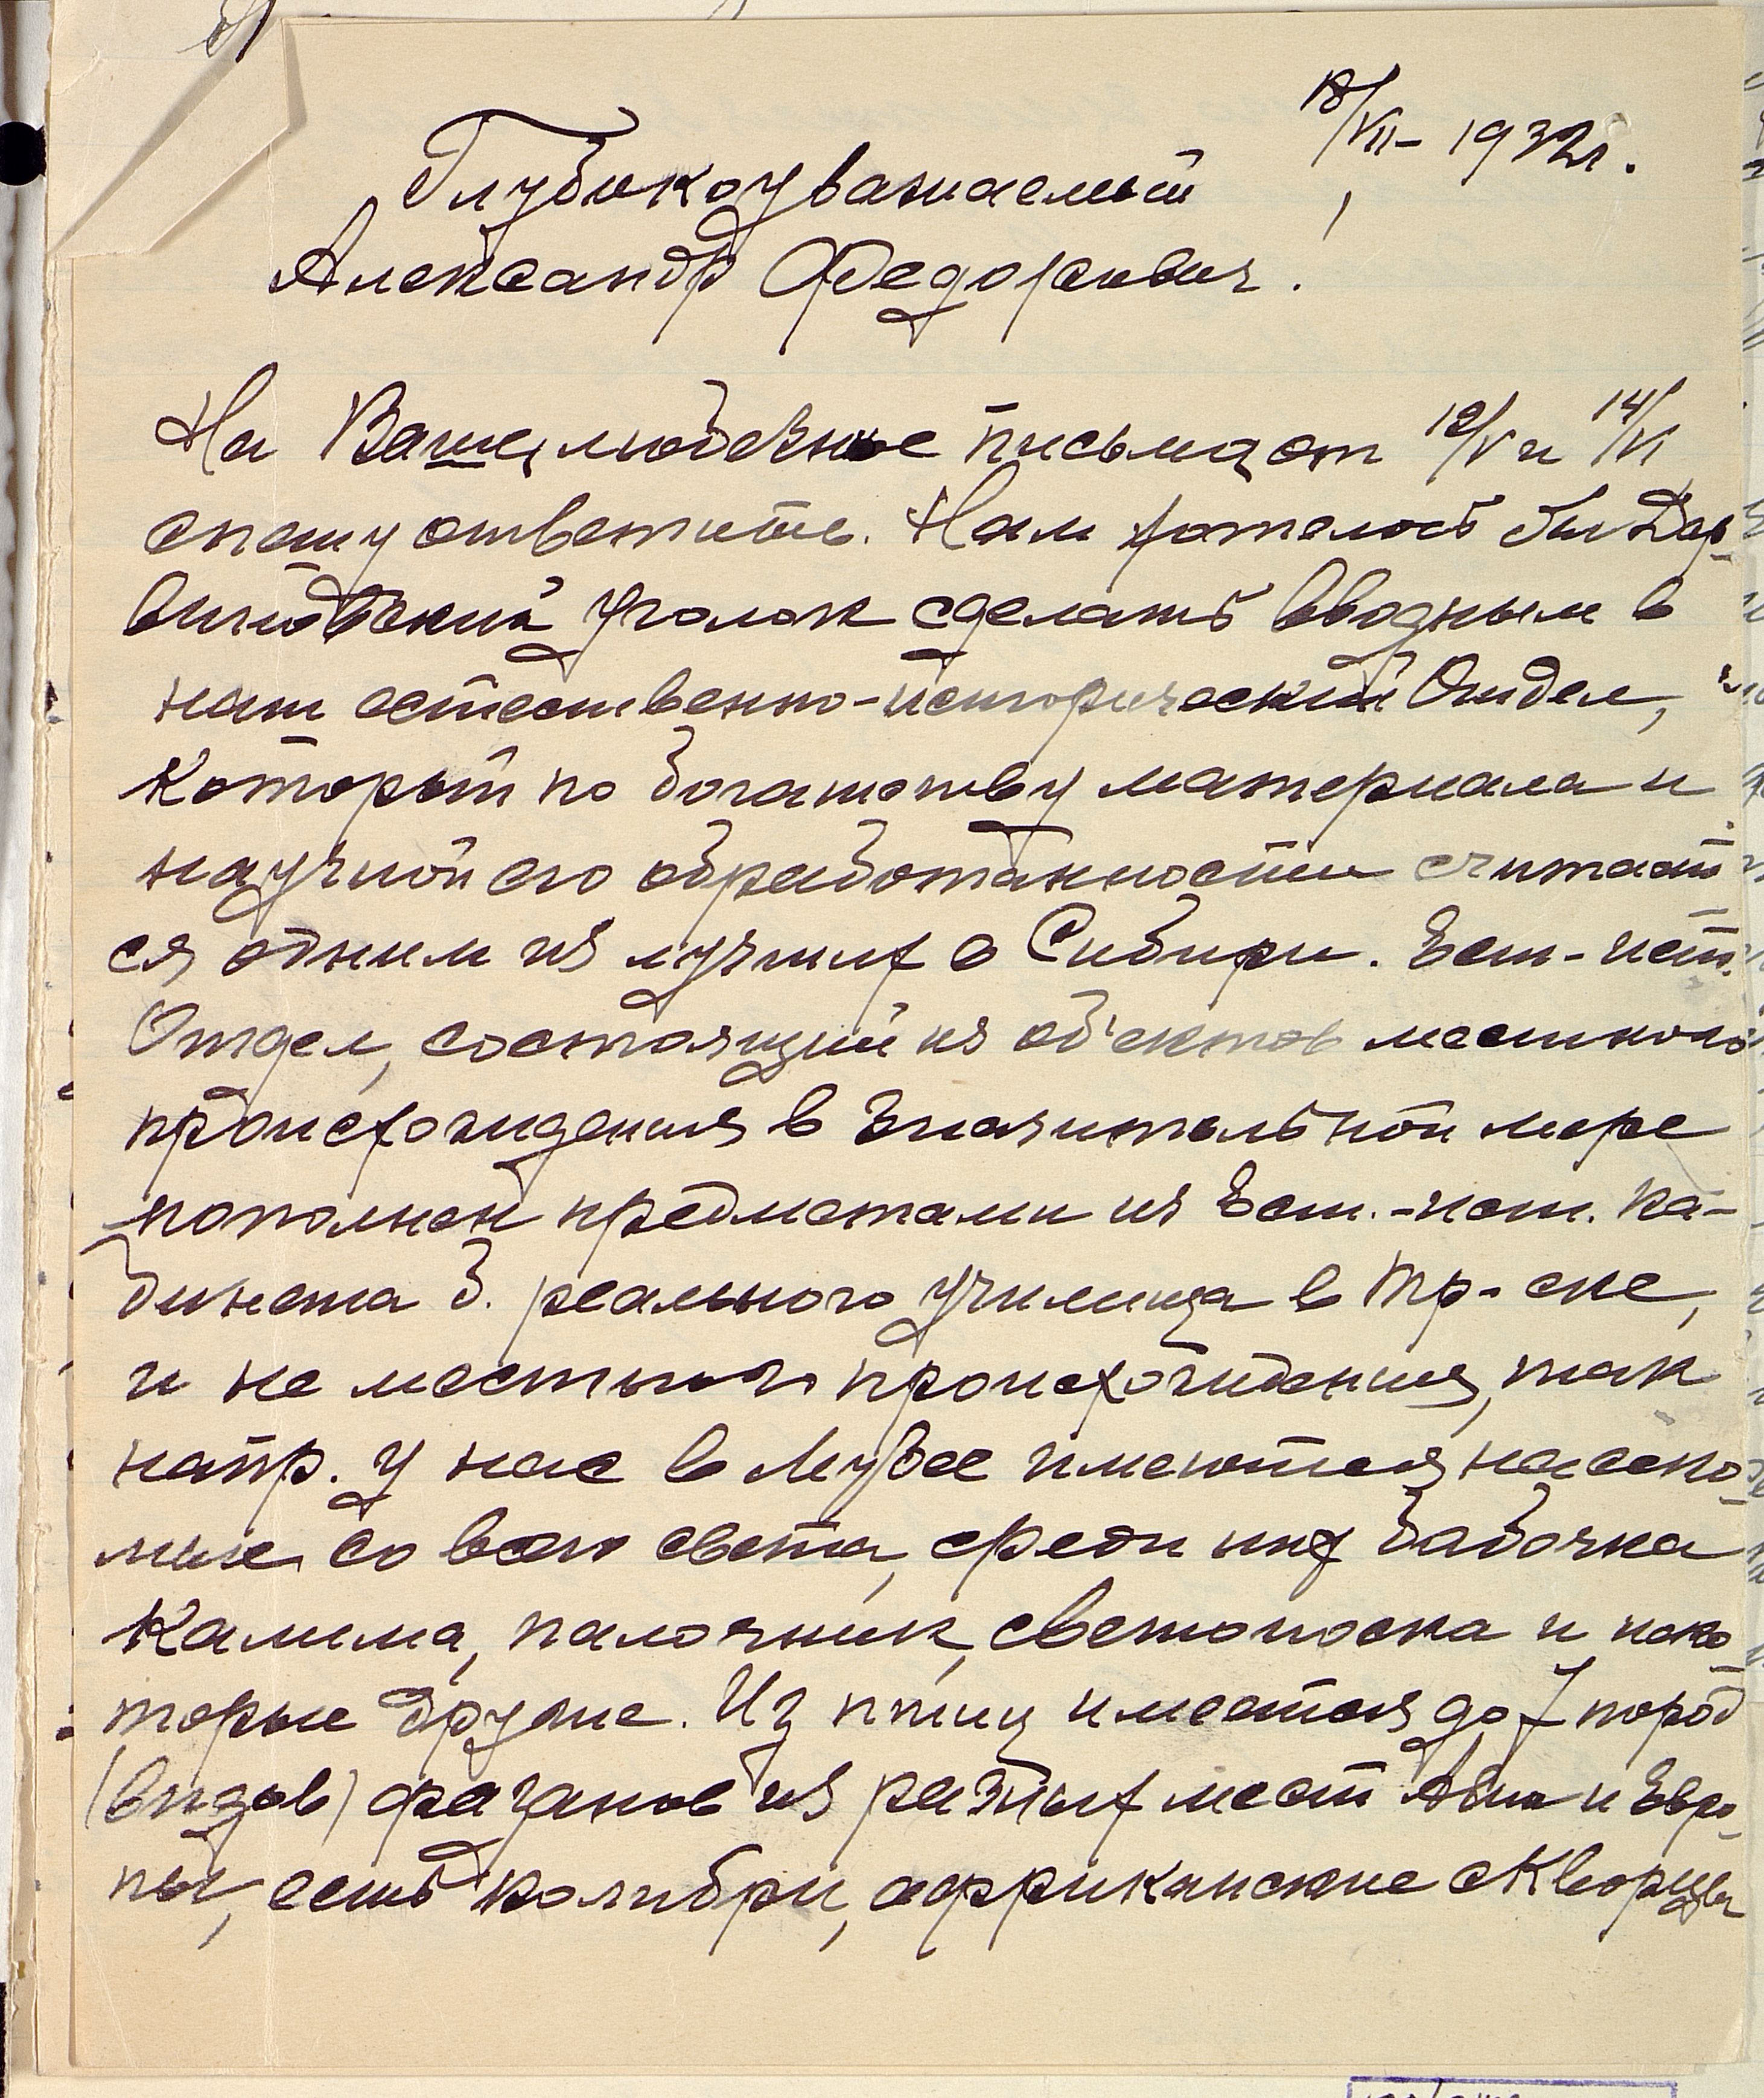 18/VII – 1932г.
Глубокоуважаемый
Александр Федорович.
На Ваше, любезное письмо, от 12/V и 14/VI
спешу ответить. Нам хотелось бы Дар-
виновский уголок сделать вводным в
наш естественно-исторический Отдел,
который по богатству материала и
научной его обработанности считает-
ся одним из лучших в Сибири. Ест-ист.
Отдел, состоящий из об'ектов местного
происхождения в значительной мере
пополнен предметами из Ест.-ист. ка-
бинета б. реального училища в Тр-ске,
и не местного происхождения, так
напр. у нас в Музее имеются насеко-
мые со всего света, среди них бабочка
Калима, палочник, светоноска и неко-
торые другие. Из птиц имеется до 7 пород
(видов) фазанов из разных мест Азии и Евро-
пы, есть колибри, африканские скворцы